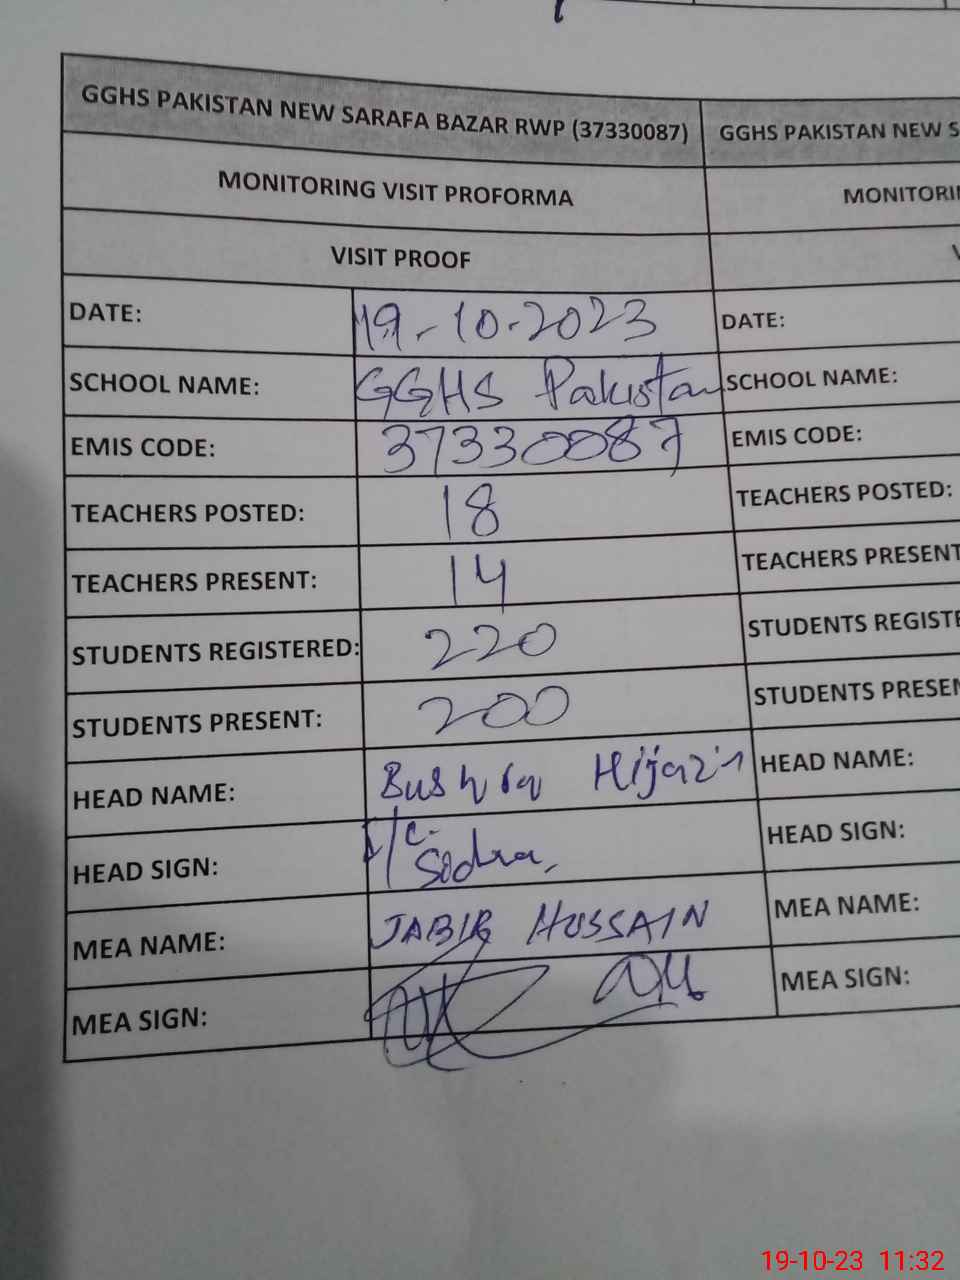 GGHS PAKISTAN NEW SARAFA BAZAR RWP (37330087)
MONITORING VISIT PROFORMA
VISIT PROOF
DATE: 19-10-2023
SCHOOL NAME: GGHS Pakistan
EMIS CODE: 37330087
TEACHERS POSTED: 18
TEACHERS PRESENT: 14
STUDENTS REGISTERED: 220
STUDENTS PRESENT: 200
HEAD NAME: Bushra Hijazi
HEAD SIGN: I/C.
MEA NAME: JABIR HUSSAIN
MEA SIGN:
GGHS PAKISTAN NEW S
MONITORI
DATE:
SCHOOL NAME:
EMIS CODE:
TEACHERS POSTED:
TEACHERS PRESENT
STUDENTS REGISTE
STUDENTS PRESEN
HEAD NAME:
HEAD SIGN:
MEA NAME:
MEA SIGN:
19-10-23 11:32